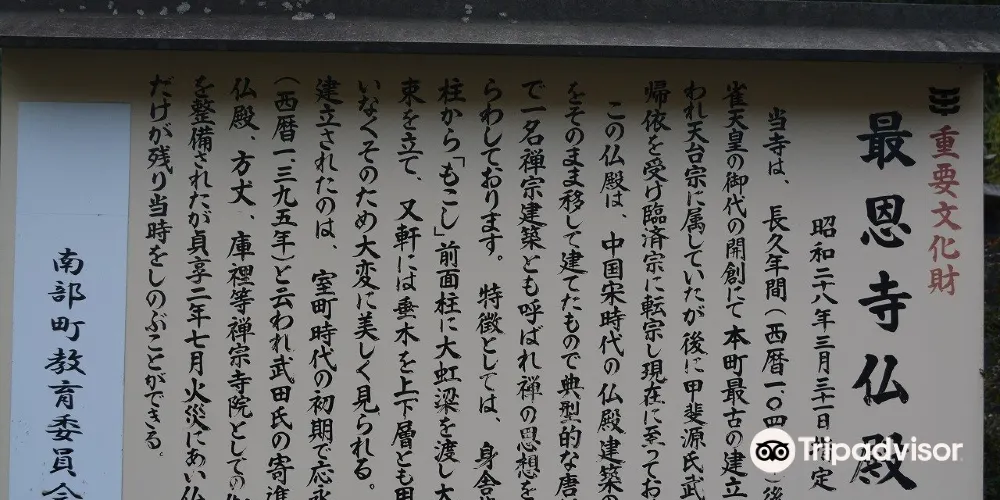 重要文化財
最恩寺仏殿
昭和二十八年三月三十一日 定
当寺は、長久年間(西暦一〇四 後
雀天皇の御代の開創にて本町最古の建立
われ天台宗に属していたが後に甲斐源氏武
帰依を受け臨済宗に転宗し現在に至ってお
この仏殿は、中国宋時代の仏殿建築の
をそのまま移して建てたもので典型的な唐
で一名禅宗建築とも呼ばれ禅の思想を
らわしております。特徴としては、身舎
柱から「もこし」前面柱に大虹梁を渡し大
束を立て、又軒には垂木を上下層とも用
いなくそのため大変に美しく見られる。
建立されたのは、室町時代の初期で応永
(西暦一三九五年)と云われ武田氏の寄進
仏殿、方丈、庫裡等禅宗寺院としての
を整備されたが貞享二年七月火災にあい仏
だけが残り当時をしのぶことができる。
南部町教育委員会
Tripadvisor